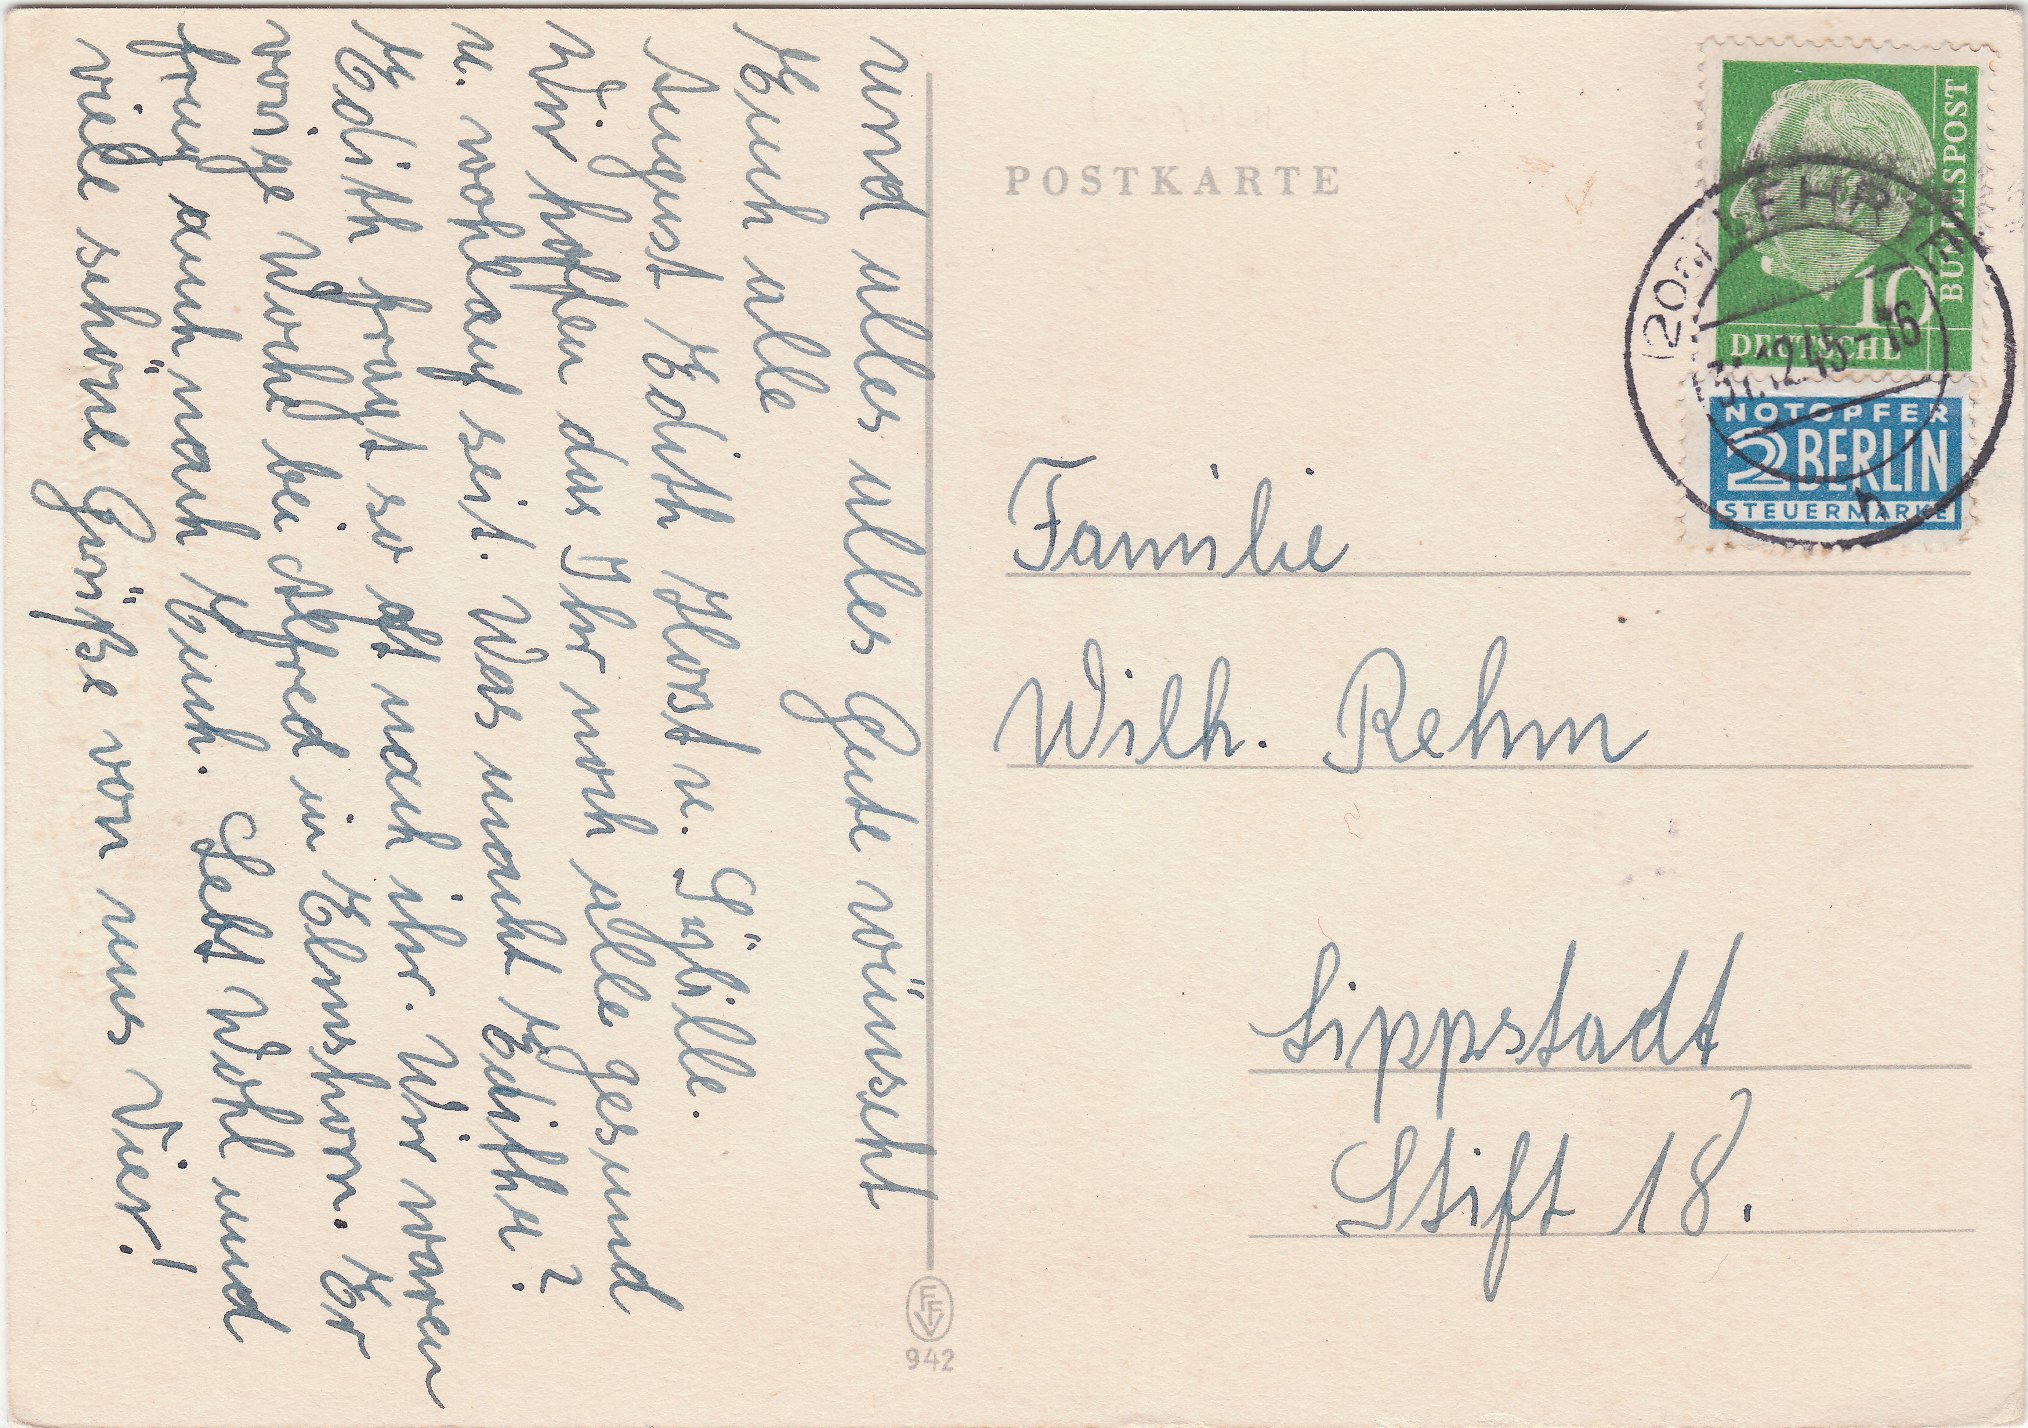 und alles alles Gute wünscht
Euch alle
August Edith Horst u. Sybille.
Wir hoffen das Ihr noch alle gesund
u. wohlauf seit. Was macht Editha?
Edith fragt so oft nach ihr. Wir waren
vorige Woche bei Alfred in Elmshorn. Er
frug auch nach Euch. Lebt Wohl und
viele schöne Grüße von uns Vier!
POSTKARTE
BUNDESPOST
10
DEUTSCHE
LEHRTE
NOTOPFER
2 BERLIN
STEUERMARKE
Familie
Wilh. Rehm
Lippstadt
Stift 18.
942